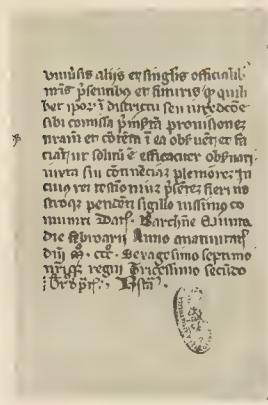 uniuẽsis aliis et singlis officialib
nr̃is p̃sentibus et futuris q̃ quili
bet ipor̃ ĩ districtu seu iurẽdcõe
sibi comissa p̃ inserta prouisionez
nram et cõtẽta ĩ ea obs̃uẽt et fa
ciat ut solitũ ẽ efficaciter obs̃uari
iuxta sui cõtinẽciaz plenioreȝ In
cuius rei testiõniuȝ p̃sẽtes fieri no
stroqȝ pendẽti sigillo iussimo co
muniri Dats̃ Barchñe Quinta
die febroarii Anno anatiuitats̃
dñi Mº. cccº. Sexagesimo septimo
nr̃iqȝ regni Tricessimo secũdo